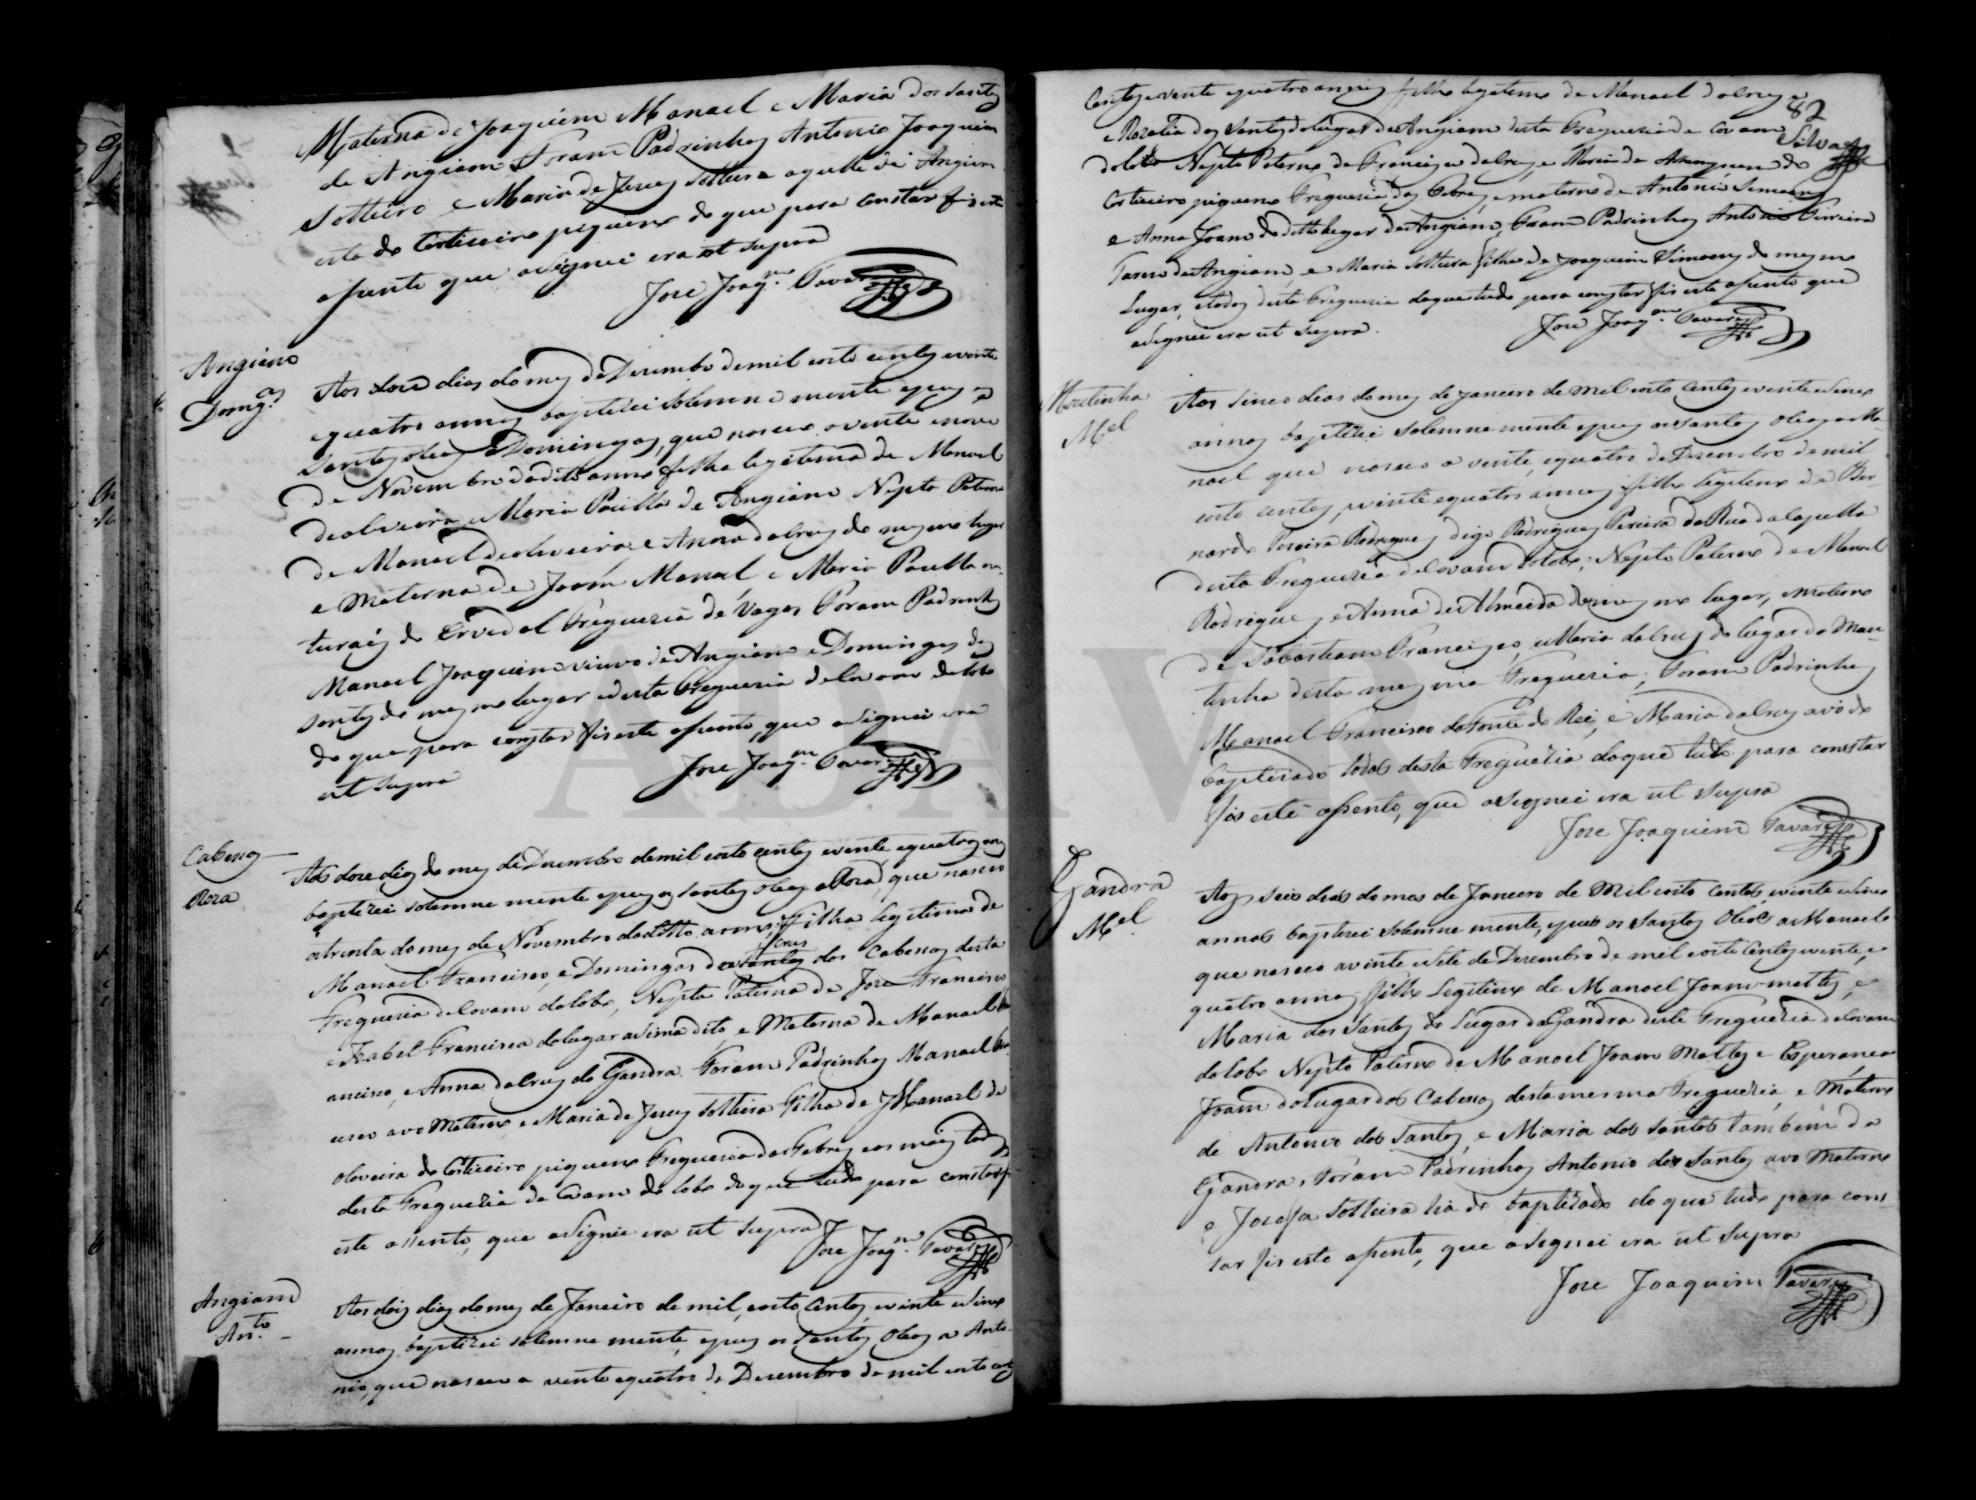 Materna de Joaquim Manoel e Maria dos Santos
de Angiam Foram Padrinhos Antonio Joaquim
Solteiro e Maria de Jesus Solteira aquelle de Angiam
esta do Corticeiro piqueno do que para Constar fis este
asento que asignei era ut supra
Jose Joaqm. Tavares
Angiam
Domgos.
Aos doze dias do mes de Dezembro de mil oito centos e vinte
e quatro annos baptizei solemne mente e pus os
Santos oleos a Domingos, que nasceo a vinte e nove
de Novembro do dito anno filho legitimo de Manoel
de oliveira e Maria Paulla de Angiam Nepto Paterno
de Manoel de oliveira e Anna da Crus do mesmo lugar
e Materno de Joam Manoel e Maria Paulla na-
turais do Ervedal Freguezia de Vagos Foram Padrinhos
Manoel Joaquim viuvo de Angiam e Domingas dos
Santos do mesmo lugar e desta Freguezia de Covam do lobo
do que para constar fis este asento, que asignei era
ut supra
Jose Joaqm. Tavares
Cabesos
Roza
Aos doze dias do mes de Dezembro de mil oito centos e vinte e quatro annos
baptizei solemne mente e pus os santos oleos a Roza, que nasceo
a trinta do mes de Novembro do ditto anno Filha legitima de
Crus
Manoel Francisco, e Domingas dos Santos dos Cabesos desta
Freguezia de Covam do lobo, Nepta Paterna de Joze Francisco
e Izabel Francisca do lugar asima dito, e Materna de Manoel
ancisco, e Anna da Crus da Gandra. Foram Padrinhos Manoel
cisco avo Materno, e Maria de Jesus Solteira filha de Manoel de
oliveira do Corticeiro piqueno Freguezia das Febres e os mais todos
desta Freguezia de Covam do lobo do que tudo para constar
este assento, que asignei era ut supra
Jose Joaqm. Tavares
Angiam
Anto.
Aos dois dias do mes de Janeiro de mil, e oito Centos e vinte e sinco
annos baptizei solemne mente, e pus os Santos Oleos a Anto-
nio, que nasceo a vente e quatro de Dezembro de mil oito cent
82
Silva
Centos e vente e quatro annos filho legitimo de Manoel da Crus e
e Rozalia dos Santos do lugar de Angiam desta Freguezia de Covam
do lobo Nepto Paterno de Francisco da Crus, e Maria de do
Corticeiro piqueno Freguezia das Febres, e materno de Antonio Simoens
e Anna Joam do ditto lugar de Angiam, Foram Padrinhos Antonio Ferreira
de Angiam, e Maria Solteira filha de Joaquim Simoens do mesmo
Lugar, e todos desta Freguezia do que tudo para constar fis este asento que
asignei era ut supra.
Jose Joaqm. Tavares
Moutinha
Mel.
Aos sinco dias do mes de Janeiro de mil oito Centos e vente e sinco
annos baptizei solemne mente e pus os santos oleos a Ma-
noel que nasceo a vente, e quatro de Dezembro de mil
oito centos, e vinte e quatro annos filho legitimo de Ber-
nardo Pereira Rodrigues digo Rodrigues Pereira da Rua da Capella
desta Freguezia de Covam do lobo; Nepto Paterno de Manoel
Rodrigues, e Anna de Almeida do mesmo lugar, e Materno
de Sabastiam Francisco, e Maria da Crus do lugar da Mou-
tinha desta mesma Freguezia; Foram Padrinhos
Manoel Francisco da Fonte do Rei, e Maria da Crus avó do
baptizado todos desta Freguezia do que tudo para constar
fis este asento, que asignei era ut supra
Joze Joaquim Tavares
Gandra
Mel.
Aos seis dias do mes de Janeiro de Mil oito Centos, e vinte e sinco
annos baptizei solemne mente, e pus os santos Oleos a Manoel
que nasceo a vinte e sete de Dezembro de mil e oito Centos e vente, e
quatro annos filho Legitimo de Manoel Joam mattos, e
Maria dos Santos do Lugar da Gandra deste Freguezia de Covam
do lobo Nepto Paterno de Manoel Joam Mattos e Esperanca
Joam do lugar dos Cabesos desta mesma Freguezia, e Materno
de Antonio dos Santos, e Maria dos Santos tambem da
Gandra, Foram Padrinhos Antonio dos Santos avo Materno
e Jozefa Solteira tia do baptizado do que tudo para cons
tar fis este asento, que asignei era ut supra
Joze Joaquim Tavares
ADAVR